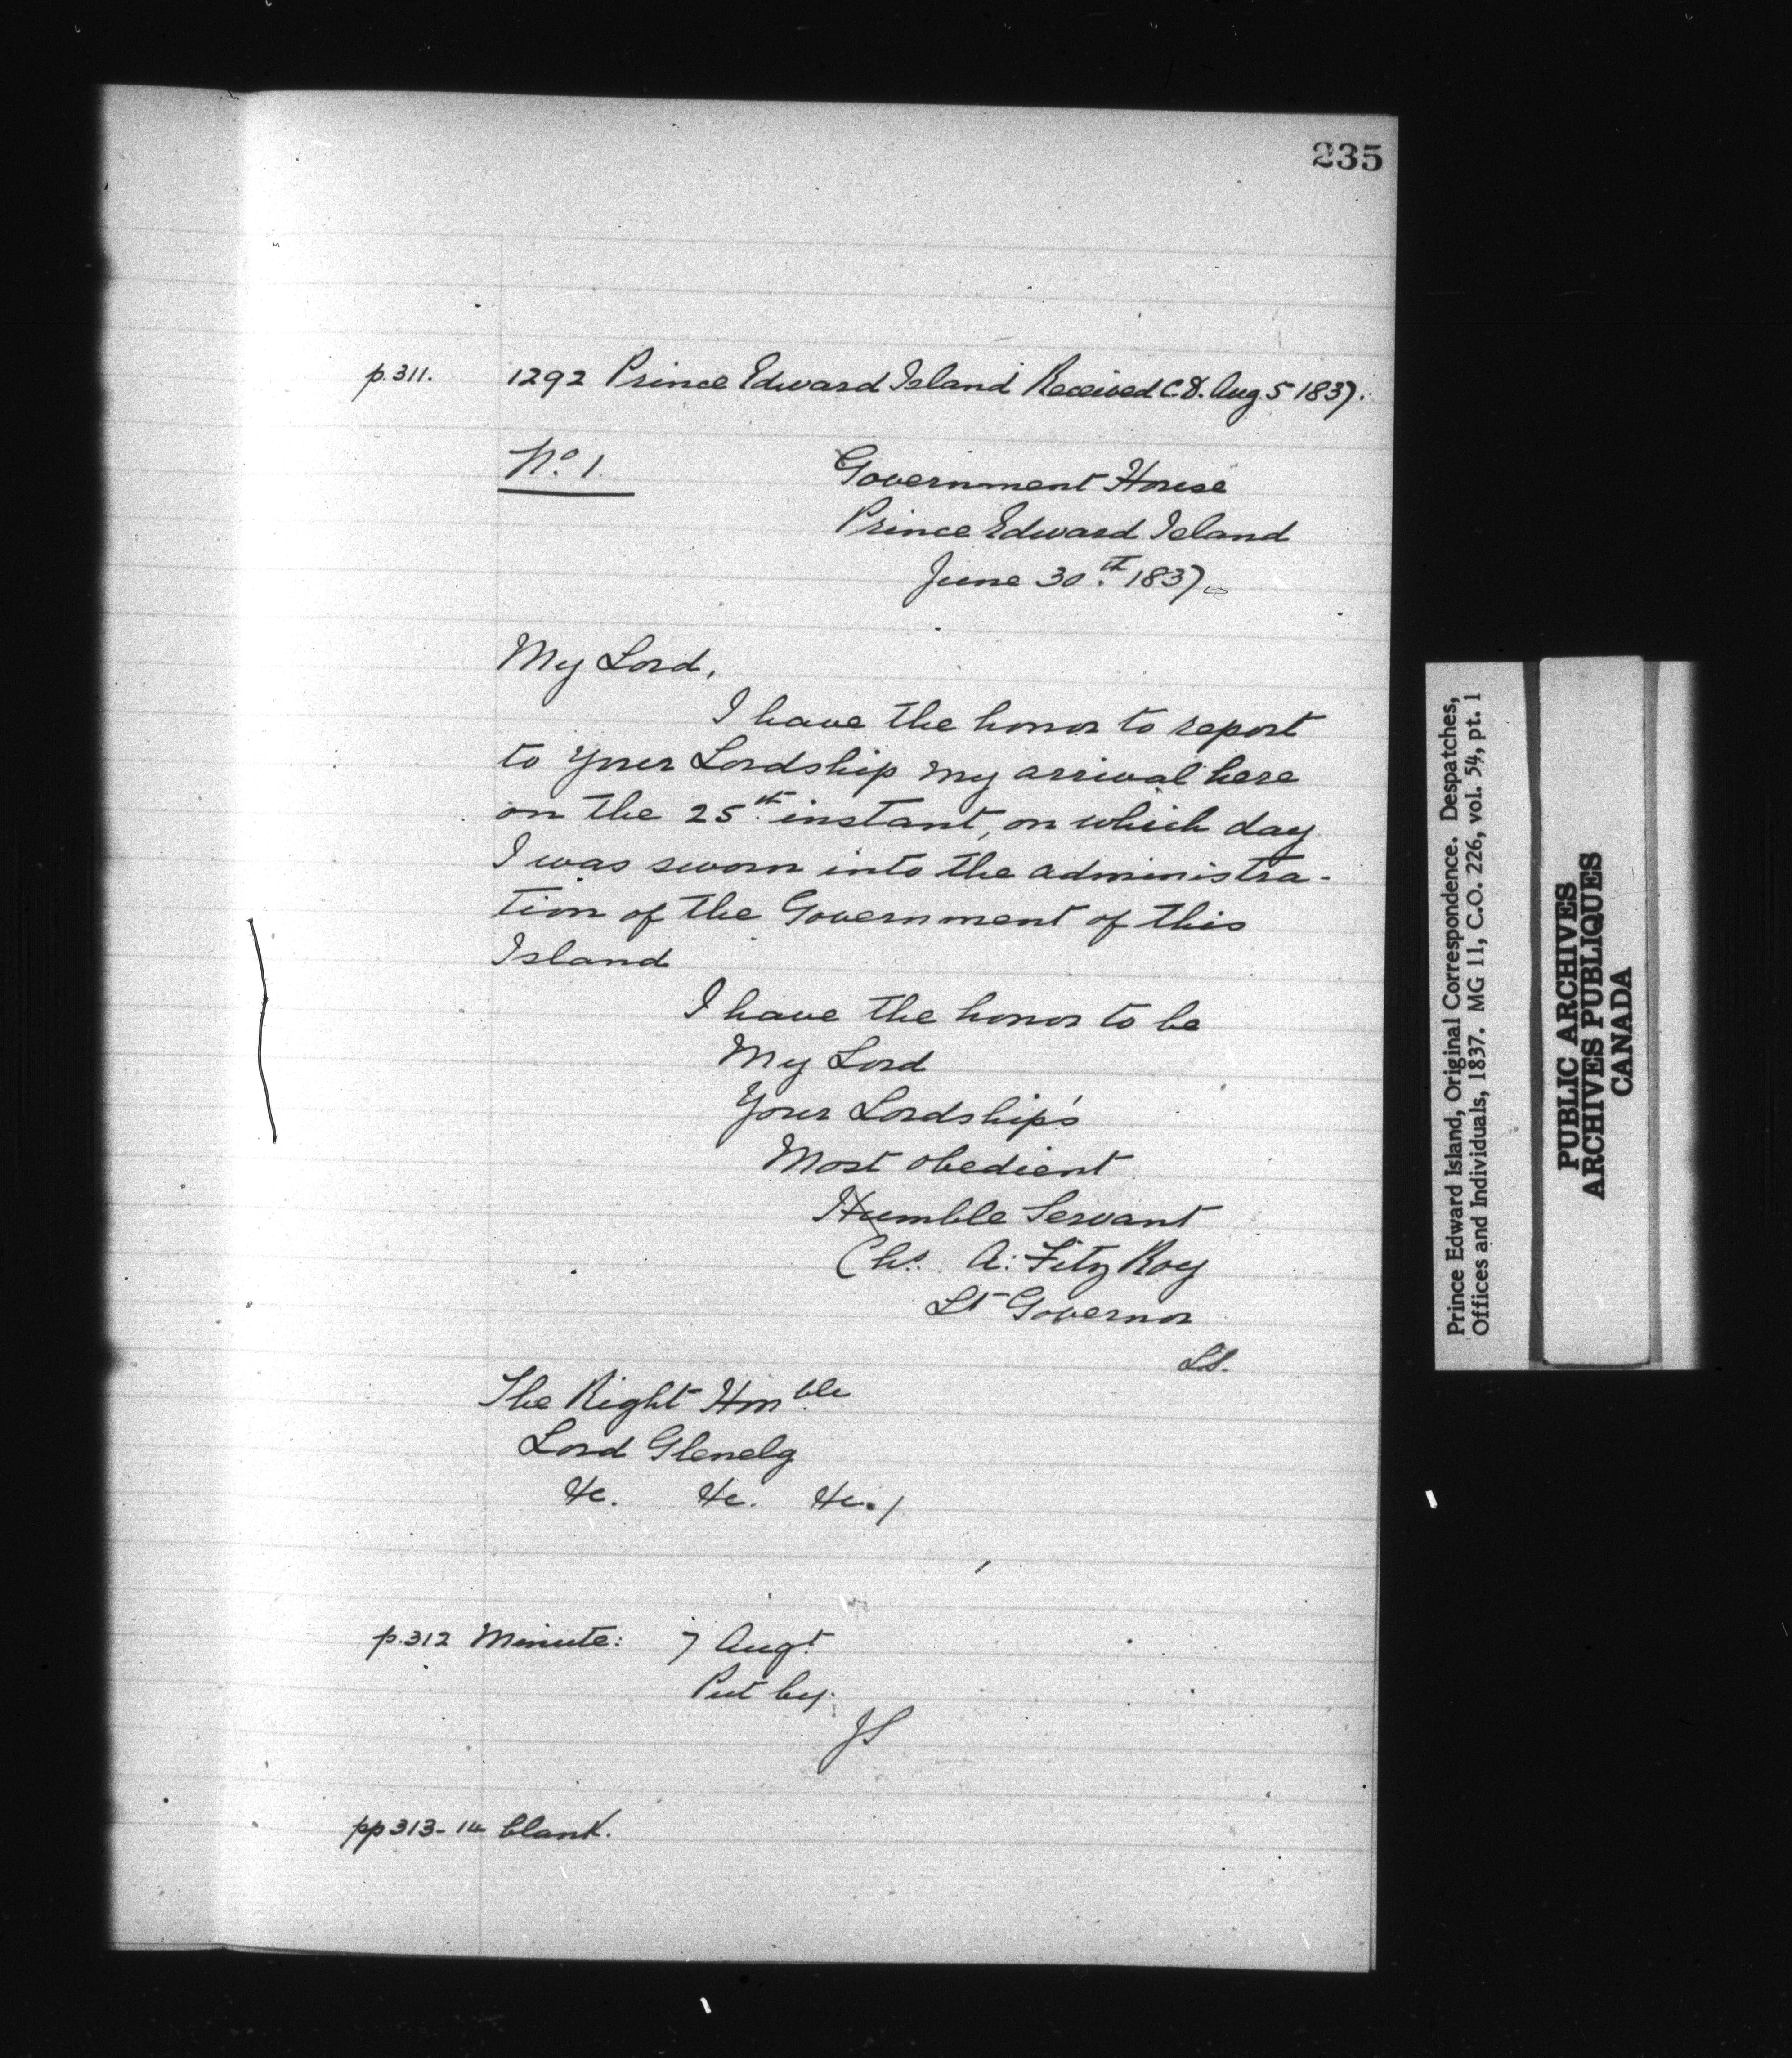 235
p.311. 1292 Prince Edward Island Received C.D. Aug. 5 1837.
No. 1.
Government House
Prince Edward Island
June 30.th 1837
My Lord,
I have the honor to report
to your Lordship my arrival here
on the 25.th instant, on which day
I was sworn into the administra-
tion of the Government of this
Island
I have the honor to be
My Lord
Your Lordship's
Most obedient
Humble Servant
Chs. A: Fitz Roy
Lt Governor
The Right Hon.ble
Lord Glenelg
&c. &c. &c. /
p.312 Minute: 7 Augt.
Put by.
JS
pp 313-14 blank.
Prince Edward Island, Original Correspondence. Despatches,
Offices and Individuals, 1837. MG 11, C.O. 226, vol. 54, pt. 1
PUBLIC ARCHIVES
ARCHIVES PUBLIQUES
CANADA